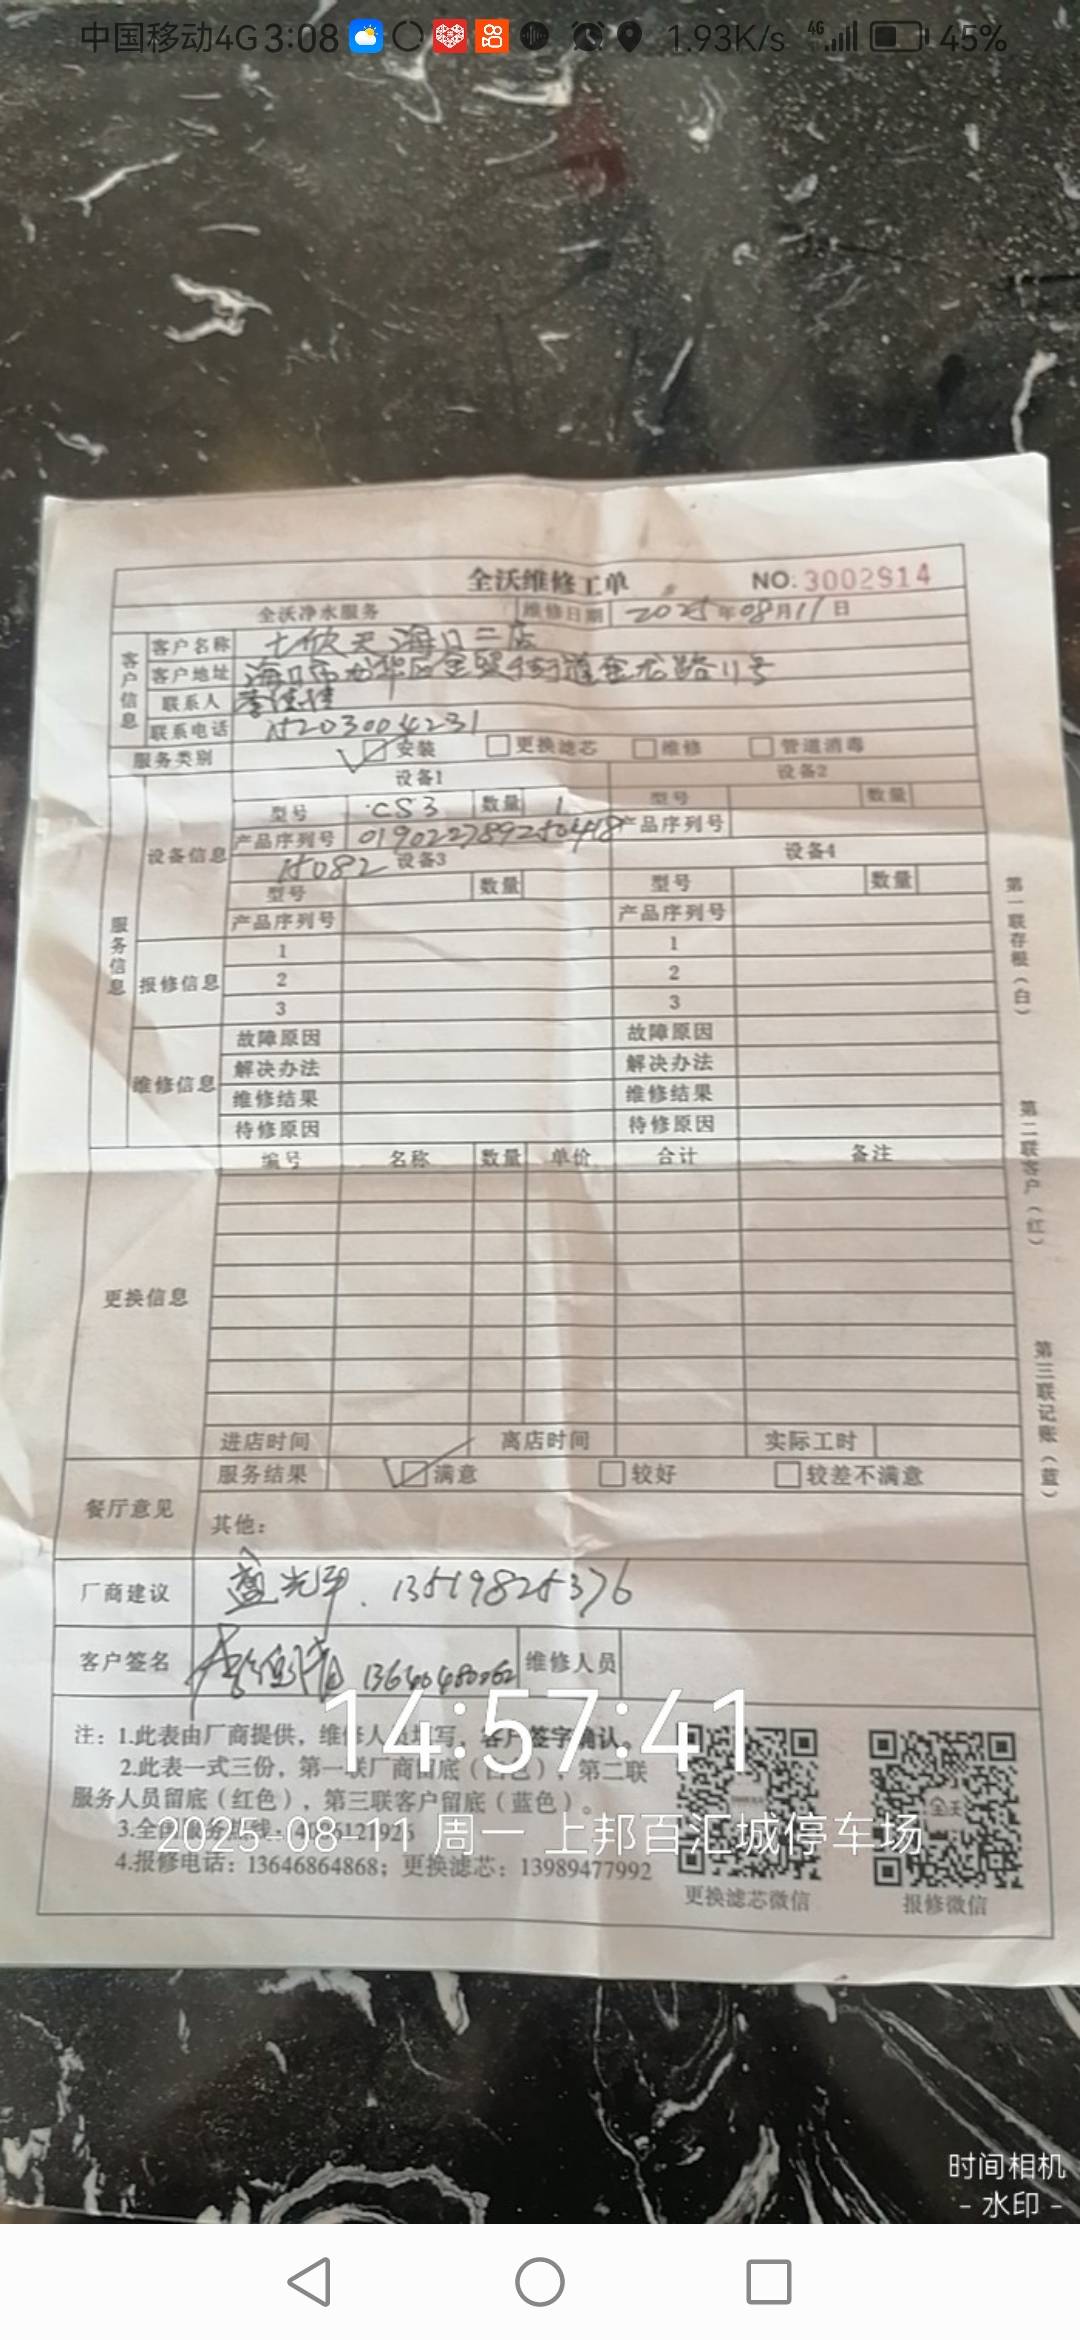 中国移动4G 3:08 1.93K/s 4G 45%
全沃维修工单 NO:3002914
全沃净水服务 维修日期 2025年08月11日
客户信息
客户名称 七欣天海口二店
客户地址 海口市龙华区金贸街道金龙路11号
联系人
联系电话 15203004231
服务类别 安装 更换滤芯 维修 管道消毒
服务信息
设备信息
设备1 设备2
型号 CS3 数量 1 型号 数量
产品序列号 019022789250418 产品序列号
15082 设备3 设备4
型号 数量 型号 数量
产品序列号 产品序列号
报修信息
1 1
2 2
3 3
维修信息
故障原因 故障原因
解决办法 解决办法
维修结果 维修结果
待修原因 待修原因
更换信息
编号 名称 数量 单价 合计 备注
进店时间 离店时间 实际工时
餐厅意见
服务结果 满意 较好 较差不满意
其他:
厂商建议 光平. 13519825376
客户签名 维修人员
注:1.此表由厂商提供,维修人员填写,客户签字确认。
2.此表一式三份,第一联厂商留底(白色),第二联
服务人员留底(红色),第三联客户留底(蓝色)。
3.全国服务热线:
4.报修电话:13646864868;更换滤芯:13989477992
更换滤芯微信 报修微信
第一联存根(白)
第二联客户(红)
第三联记账(蓝)
14:57:41
2025-08-11 周一 上邦百汇城停车场
时间相机
- 水印 -